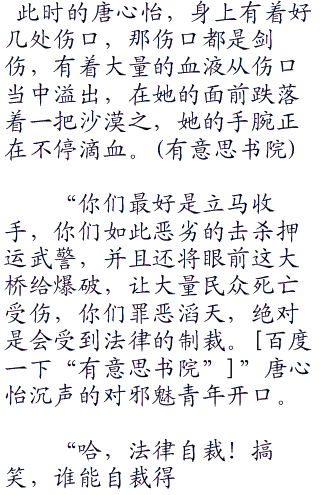 此时的唐心怡，身上有着好
几处伤口，那伤口都是剑
伤，有着大量的血液从伤口
当中溢出，在她的面前跌落
着一把沙漠之，她的手腕正
在不停滴血。(有意思书院)
“你们最好是立马收
手，你们如此恶劣的击杀押
运武警，并且还将眼前这大
桥给爆破，让大量民众死亡
受伤，你们罪恶滔天，绝对
是会受到法律的制裁。[百度
一下“有意思书院”]”唐心
怡沉声的对邪魅青年开口。
“哈，法律自裁！搞
笑，谁能自裁得